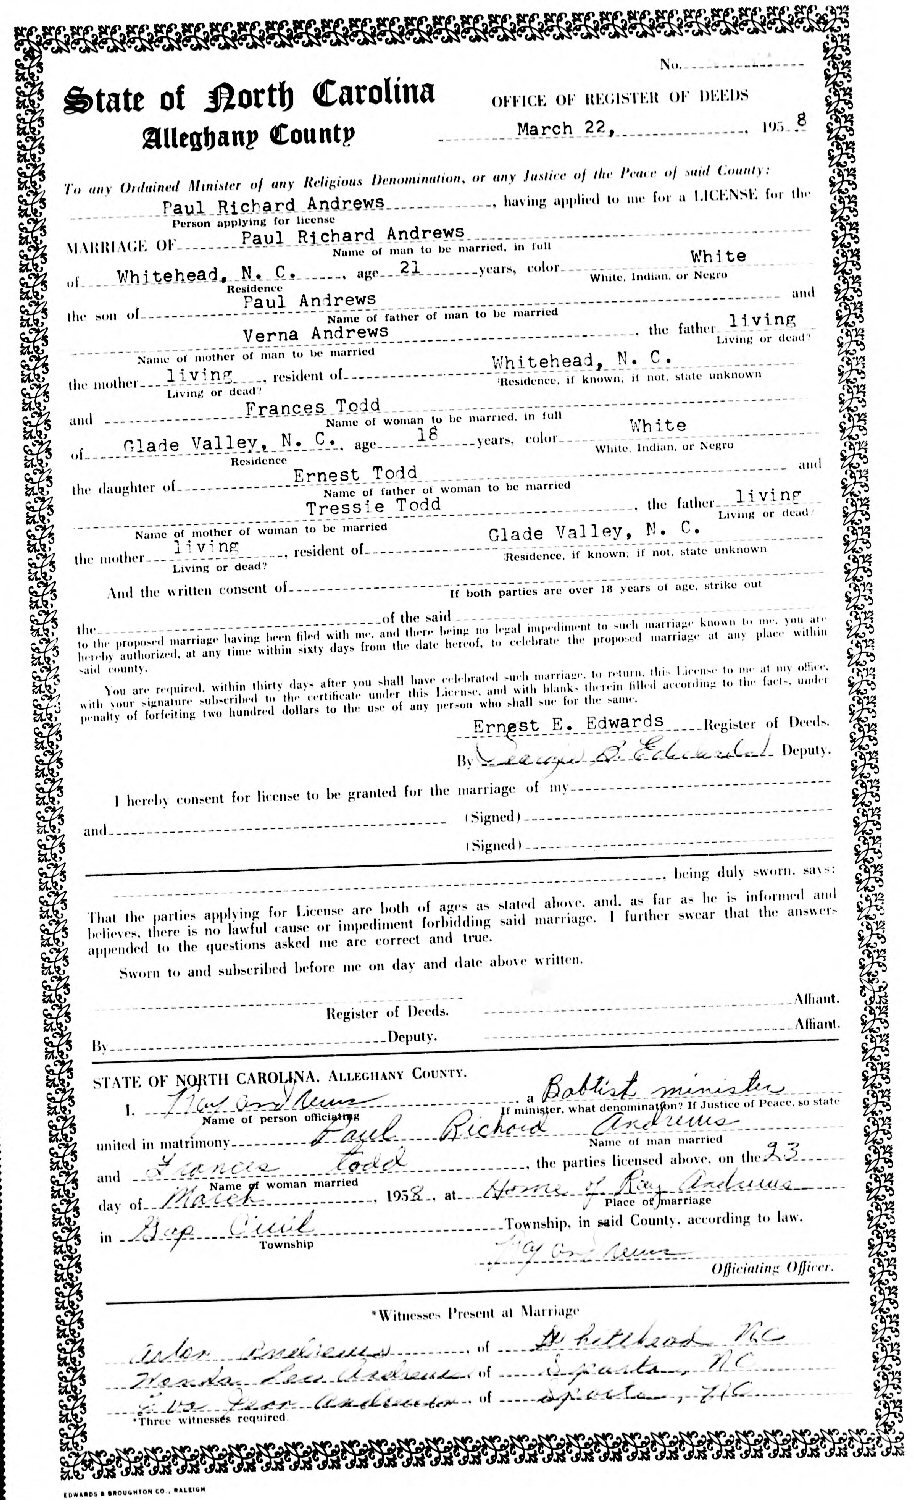 No.
State of North Carolina
OFFICE OF REGISTER OF DEEDS
Alleghany County
March 22, , 1958
To any Ordained Minister of any Religious Denomination, or any Justice of the Peace of said County:
Paul Richard Andrews , having applied to me for a LICENSE for the
Person applying for license
MARRIAGE OF Paul Richard Andrews
Name of man to be married, in full
of Whitehead, N. C. , age 21 years, color White
Residence White, Indian, or Negro
the son of Paul Andrews and
Name of father of man to be married
Verna Andrews , the father living
Name of mother of man to be married Living or dead?
the mother living , resident of Whitehead, N. C.
Living or dead? Residence, if known, if not, state unknown
and Frances Todd
Name of woman to be married, in full
of Glade Valley, N. C. , age 18 years, color White
Residence White, Indian, or Negro
the daughter of Ernest Todd and
Name of father of woman to be married
Tressie Todd , the father living
Name of mother of woman to be married Living or dead?
the mother living , resident of Glade Valley, N. C.
Living or dead? Residence, if known; if not, state unknown
And the written consent of
If both parties are over 18 years of age, strike out
the of the said
to the proposed marriage having been filed with me, and there being no legal impediment to such marriage known to me, you are
hereby authorized, at any time within sixty days from the date hereof, to celebrate the proposed marriage at any place within
said county.
You are required, within thirty days after you shall have celebrated such marriage, to return, this License to me at my office,
with your signature subscribed to the certificate under this License, and with blanks therein filled according to the facts, under
penalty of forfeiting two hundred dollars to the use of any person who shall sue for the same.
Ernest E. Edwards Register of Deeds.
By B. Edwards Deputy.
I hereby consent for license to be granted for the marriage of my
and (Signed)
(Signed)
, being duly sworn, says:
That the parties applying for License are both of ages as stated above, and, as far as he is informed and
believes, there is no lawful cause or impediment forbidding said marriage. I further swear that the answers
appended to the questions asked me are correct and true.
Sworn to and subscribed before me on day and date above written.
Affiant.
Register of Deeds.
Affiant.
By Deputy.
STATE OF NORTH CAROLINA, ALLEGHANY COUNTY.
I, Ray Andrews a Babtist minister
Name of person officiating If minister, what denomination? If Justice of Peace, so state
united in matrimony Paul Richard Andrews
Name of man married
and Frances Todd , the parties licensed above, on the 23
Name of woman married
day of March , 1958 , at Home of Ray Andrews
Place of marriage
in Gap Civil Township, in said County, according to law.
Township
Ray Andrews
Officiating Officer.
*Witnesses Present at Marriage
Andrews of Whitehead NC
Wanda Lee Andrews of Sparta, NC
Eva Andrews of Sparta, NC
*Three witnesses required
EDWARDS & BROUGHTON CO., RALEIGH